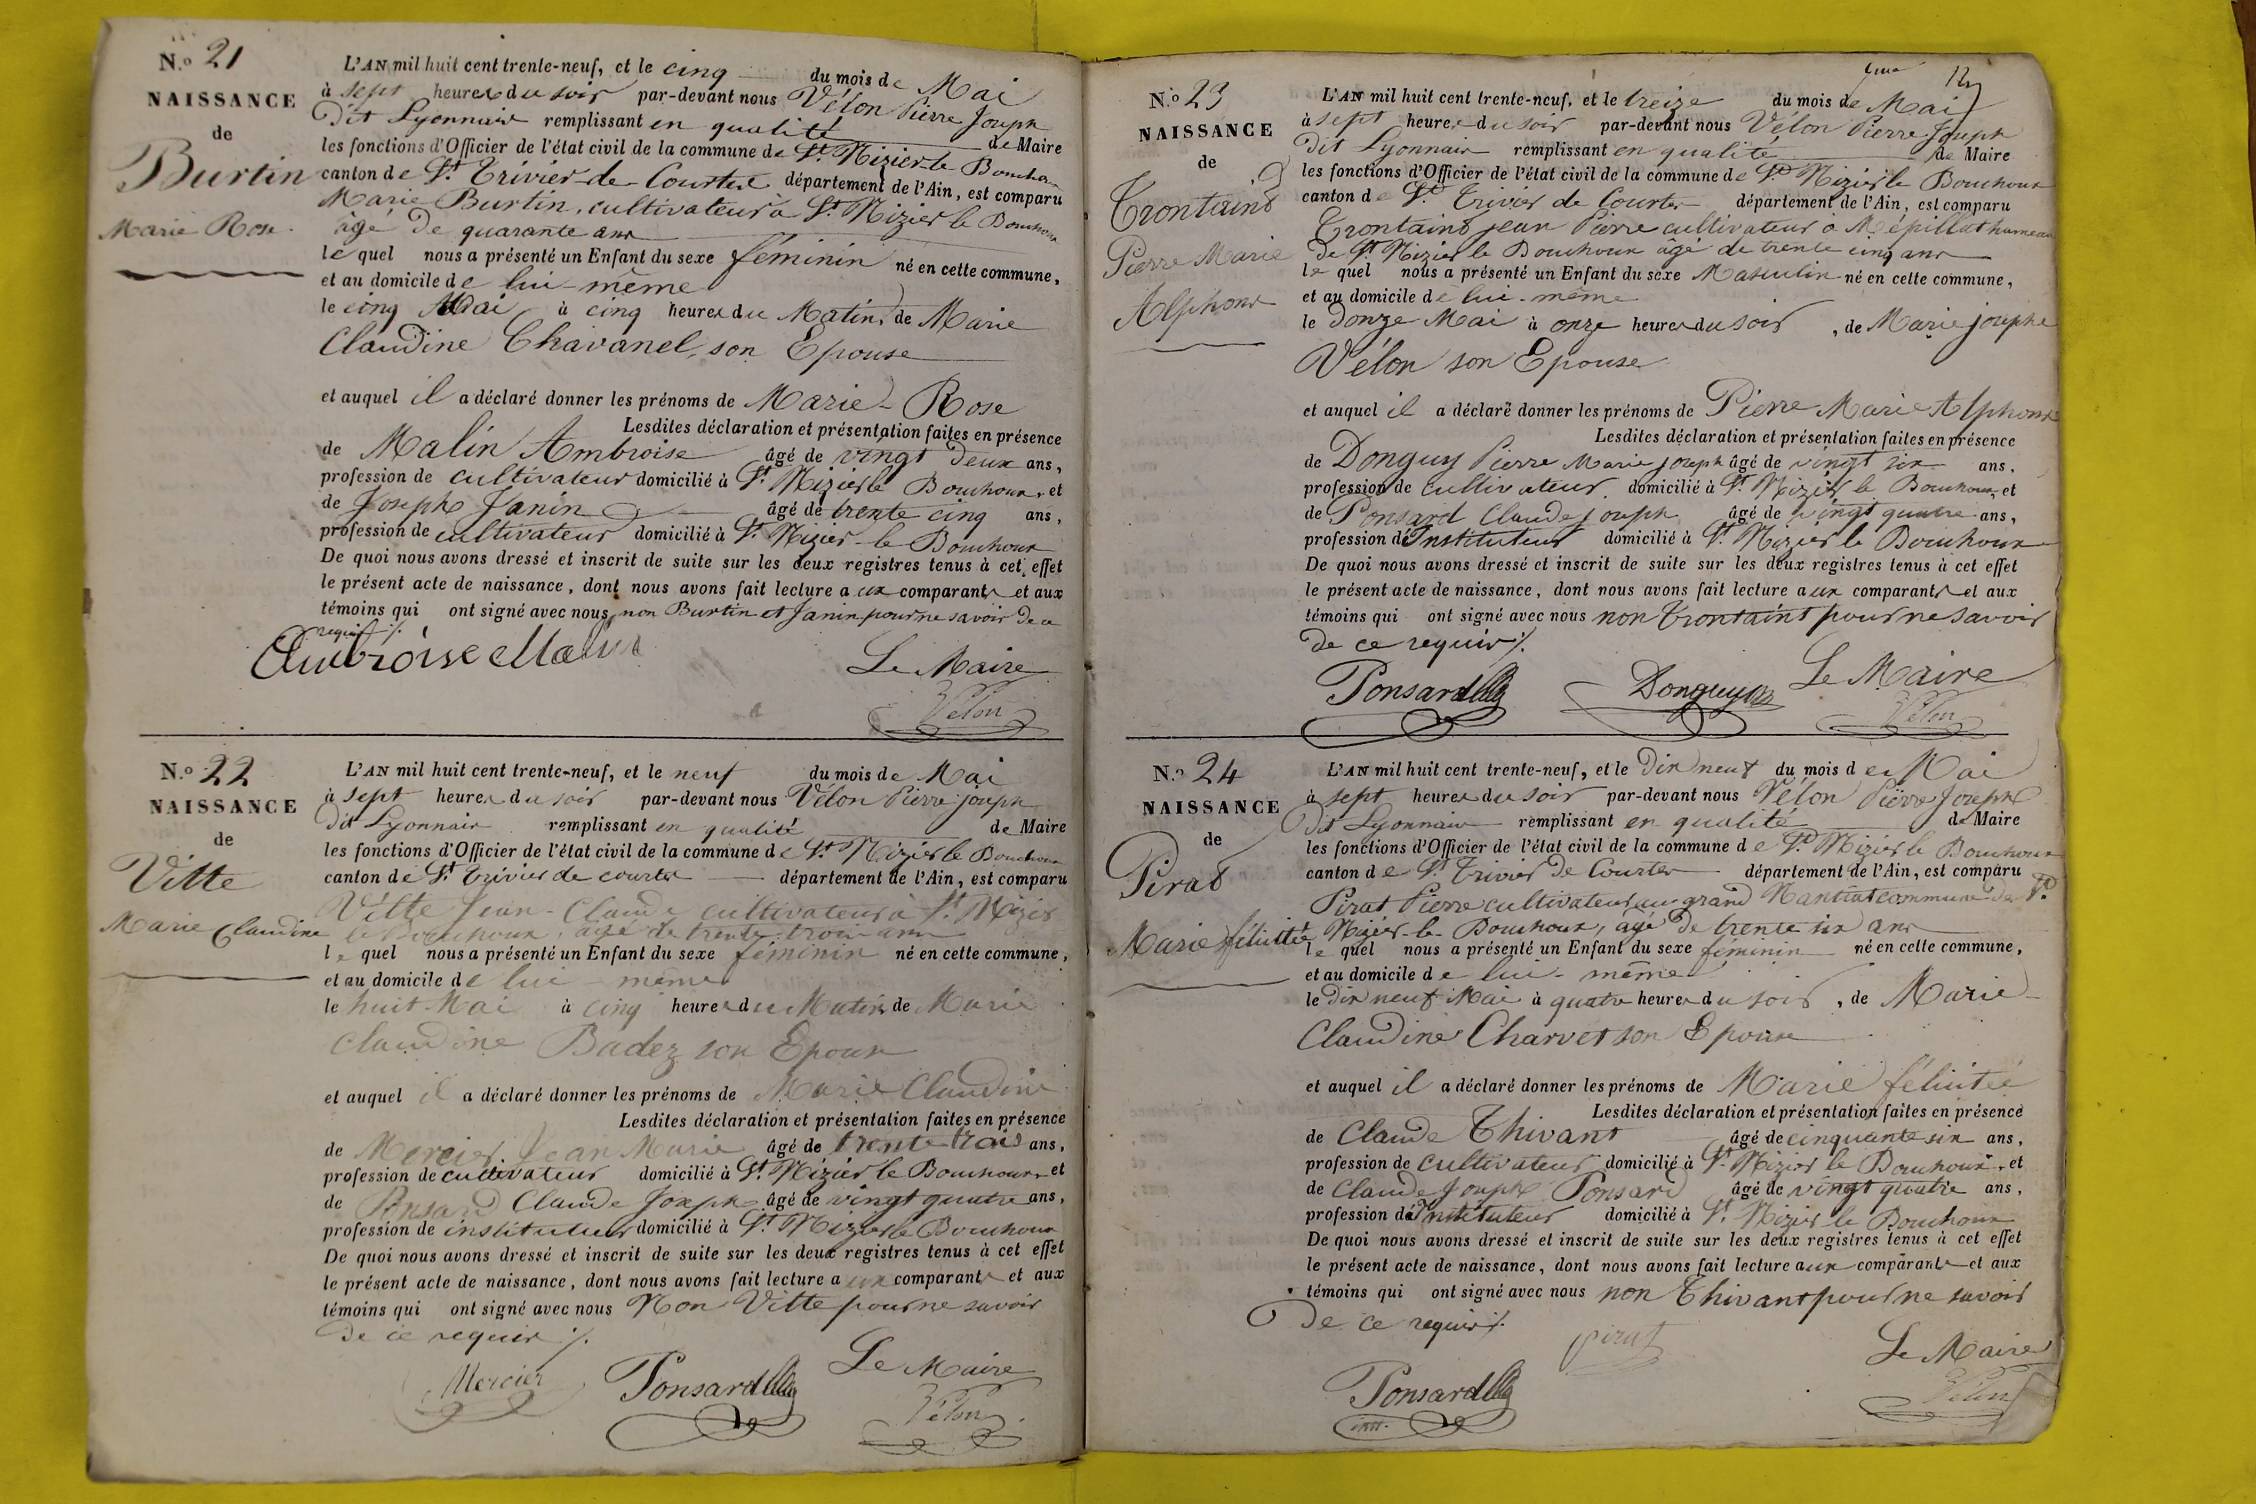 N.o 21
NAISSANCE
de
Burtin
Marie Rose.
L'AN mil huit cent trente-neuf, et le cinq du mois de Mai
à sept heures du soir par-devant nous Vélon Pierre Joseph
dit Lyonnais remplissant en qualité de Maire
les fonctions d'Officier de l'état civil de la commune de St. Nizier le Bouchoux
canton de St. Trivier de Courtes département de l'Ain, est comparu
Marie Burtin, cultivateur à St. Nizier le Bouchoux
âgé de quarante ans
le quel nous a présenté un Enfant du sexe féminin né en cette commune,
et au domicile de lui-même
le cinq Mai à cinq heures du Matin, de Marie
Claudine Chavanel, son Epouse
et auquel il a déclaré donner les prénoms de Marie-Rose
Lesdites déclaration et présentation faites en présence
de Malin Ambroise âgé de vingt deux ans,
profession de cultivateur domicilié à St. Nizier le Bouchoux, et
de Joseph Janin âgé de trente cinq ans,
profession de cultivateur domicilié à St. Nizier-le Bouchoux
De quoi nous avons dressé et inscrit de suite sur les deux registres tenus à cet effet
le présent acte de naissance, dont nous avons fait lecture aux comparants et aux
témoins qui ont signé avec nous, non Burtin et Janin pour ne savoir de ce
requis ./.
Ambroise Malin
Le Maire
Vélon
N.o 22
NAISSANCE
de
Vitte
Marie Claudine
L'AN mil huit cent trente-neuf, et le neuf du mois de Mai
à sept heures du soir par-devant nous Vélon Pierre joseph
dit Lyonnais remplissant en qualité de Maire
les fonctions d'Officier de l'état civil de la commune de St. Nizier le Bouchoux
canton de St. Trivier de courtes département de l'Ain, est comparu
Vitte Jean-Claude cultivateur à St. Nizier
le Bouchoux, âgé de trente-trois ans
le quel nous a présenté un Enfant du sexe féminin né en cette commune,
et au domicile de lui-même
le huit Mai à cinq heures du Matin, de Marie
Claudine Badez son Epouse
et auquel il a déclaré donner les prénoms de Marie Claudine
Lesdites déclaration et présentation faites en présence
de Mercier Jean Marie âgé de trente trois ans,
profession de cultivateur domicilié à St. Nizier le Bouchoux, et
de Ponsard Claude Joseph âgé de vingt quatre ans,
profession de instituteur domicilié à St. Nizier le Bouchoux
De quoi nous avons dressé et inscrit de suite sur les deux registres tenus à cet effet
le présent acte de naissance, dont nous avons fait lecture aux comparants et aux
témoins qui ont signé avec nous Non Vitte pour ne savoir
de ce requis ./.
Mercier
Ponsard
Le Maire
Vélon
N.o 23
NAISSANCE
de
Trontaint
Pierre Marie
Alphonse
L'AN mil huit cent trente-neuf, et le treize du mois de Mai
à sept heures du soir par-devant nous Vélon Pierre Joseph
dit Lyonnais remplissant en qualité de Maire
les fonctions d'Officier de l'état civil de la commune de St. Nizier le Bouchoux
canton de St. Trivier de Courtes département de l'Ain, est comparu
Trontaint jean Pierre cultivateur à Mépillat hameau
de St. Nizier le Bouchoux âgé de trente cinq ans
le quel nous a présenté un Enfant du sexe Masculin né en cette commune,
et au domicile de lui-même
le Douze Mai à onze heures du soir, de Marie josephe
Vélon son Epouse
et auquel il a déclaré donner les prénoms de Pierre Marie Alphonse
Lesdites déclaration et présentation faites en présence
de Donguy Pierre Marie joseph âgé de vingt six ans,
profession de cultivateur domicilié à St. Nizier le Bouchoux, et
de Ponsard Claude joseph âgé de vingt quatre ans,
profession de Instituteur domicilié à St. Nizier le Bouchoux
De quoi nous avons dressé et inscrit de suite sur les deux registres tenus à cet effet
le présent acte de naissance, dont nous avons fait lecture aux comparants et aux
témoins qui ont signé avec nous non Trontaint pour ne savoir
de ce requis ./.
Ponsard
Donguy
Le Maire
Vélon
N.o 24
NAISSANCE
de
Pirat
Marie félicitée
L'AN mil huit cent trente-neuf, et le Dix neuf du mois de Mai
à sept heures du soir par-devant nous Vélon Pierre Joseph
dit Lyonnais remplissant en qualité de Maire
les fonctions d'Officier de l'état civil de la commune de St. Nizier le Bouchoux
canton de St. Trivier de Courtes département de l'Ain, est comparu
Pirat Pierre cultivateur au grand Nantiat commune de St.
Nizier-le-Bouchoux, âgé de trente six ans
le quel nous a présenté un Enfant du sexe féminin né en cette commune,
et au domicile de lui-même
le dix neuf Mai à quatre heures du soir, de Marie
Claudine Charvet son Epouse
et auquel il a déclaré donner les prénoms de Marie félicitée
Lesdites déclaration et présentation faites en présence
de Claude Thivant âgé de cinquante six ans,
profession de cultivateur domicilié à St. Nizier le Bouchoux, et
de Claude Joseph Ponsard âgé de vingt quatre ans,
profession de Instituteur domicilié à St. Nizier le Bouchoux
De quoi nous avons dressé et inscrit de suite sur les deux registres tenus à cet effet
le présent acte de naissance, dont nous avons fait lecture aux comparants et aux
témoins qui ont signé avec nous non Thivant pour ne savoir
de ce requis ./.
pirat
Ponsard
Le Maire
Vélon